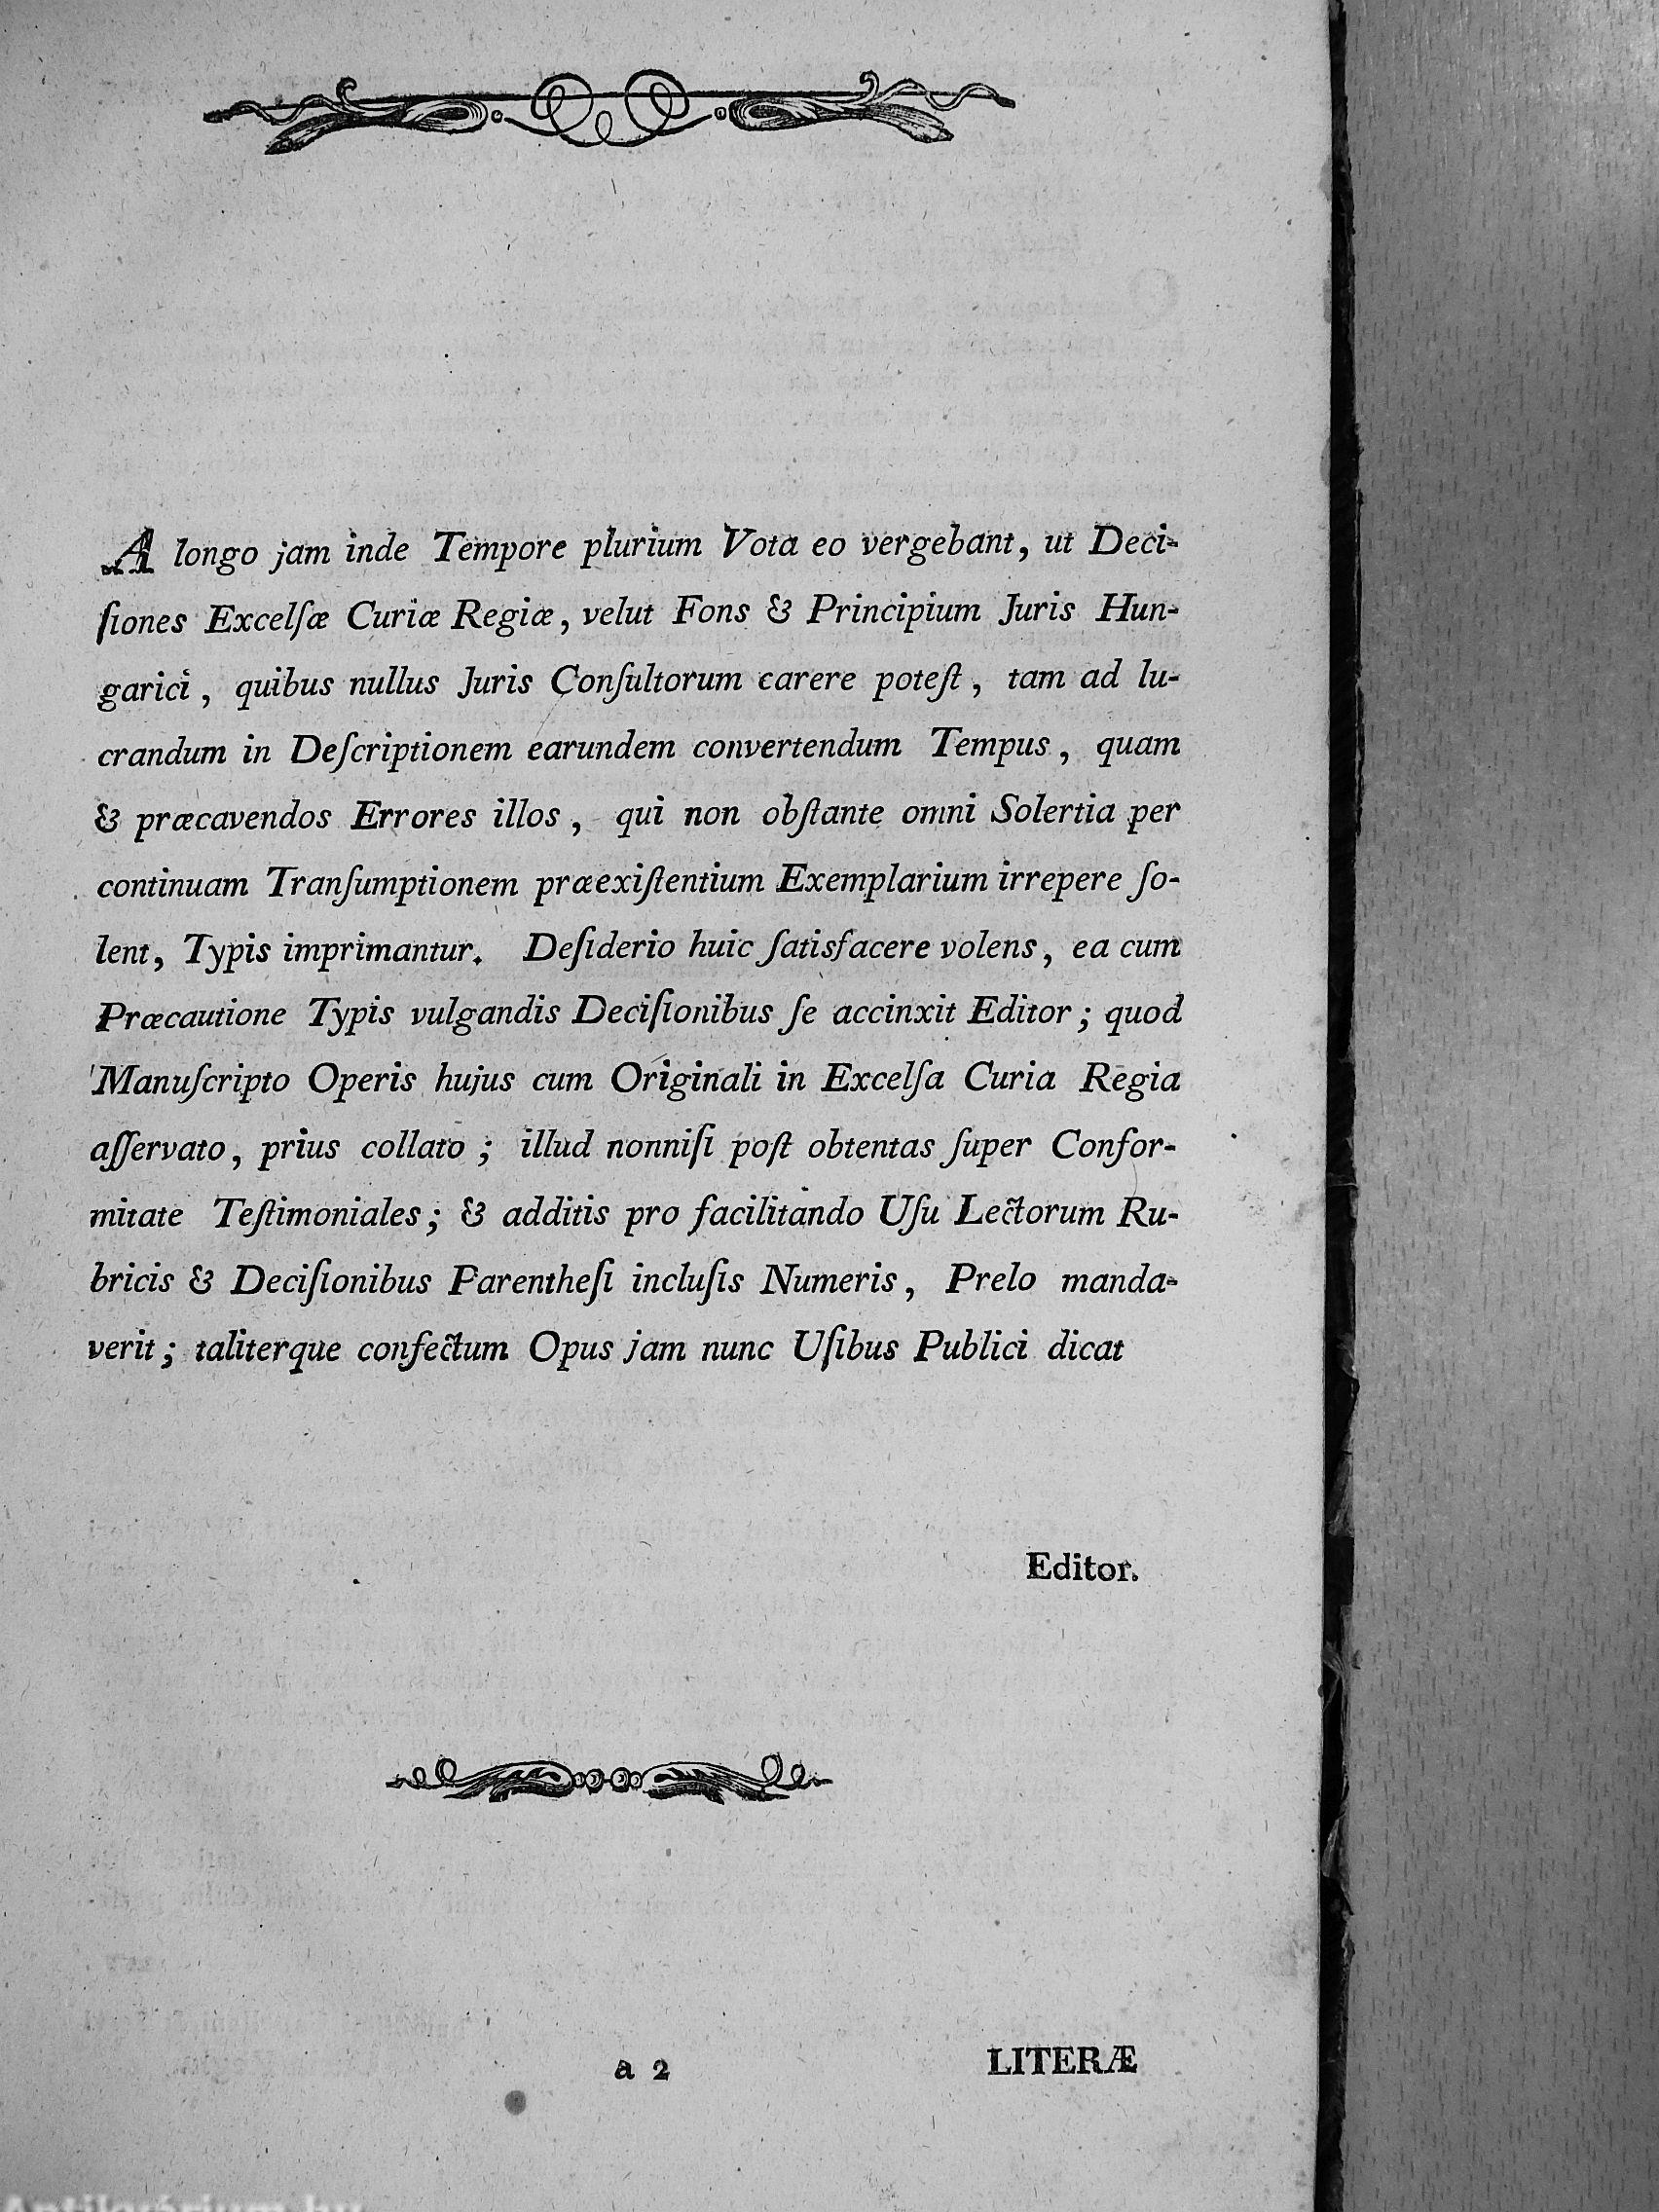 A longo jam inde Tempore plurium Vota eo vergebant, ut Deci-
ſiones Excelſæ Curiæ Regiæ, velut Fons & Principium Juris Hun-
garici, quibus nullus Juris Conſultorum carere poteſt, tam ad lu-
crandum in Deſcriptionem earundem convertendum Tempus, quam
& præcavendos Errores illos, qui non obſtante omni Solertia per
continuam Tranſumptionem præexiſtentium Exemplarium irrepere ſo-
lent, Typis imprimantur. Deſiderio huic ſatisfacere volens, ea cum
Præcautione Typis vulgandis Deciſionibus ſe accinxit Editor; quod
Manuſcripto Operis hujus cum Originali in Excelſa Curia Regia
aſſervato, prius collato; illud nonniſi poſt obtentas ſuper Confor-
mitate Teſtimoniales; & additis pro facilitando Uſu Lectorum Ru-
bricis & Deciſionibus Parentheſi incluſis Numeris, Prelo manda-
verit; taliterque confectum Opus jam nunc Uſibus Publici dicat
Editor.
a 2 LITERÆ